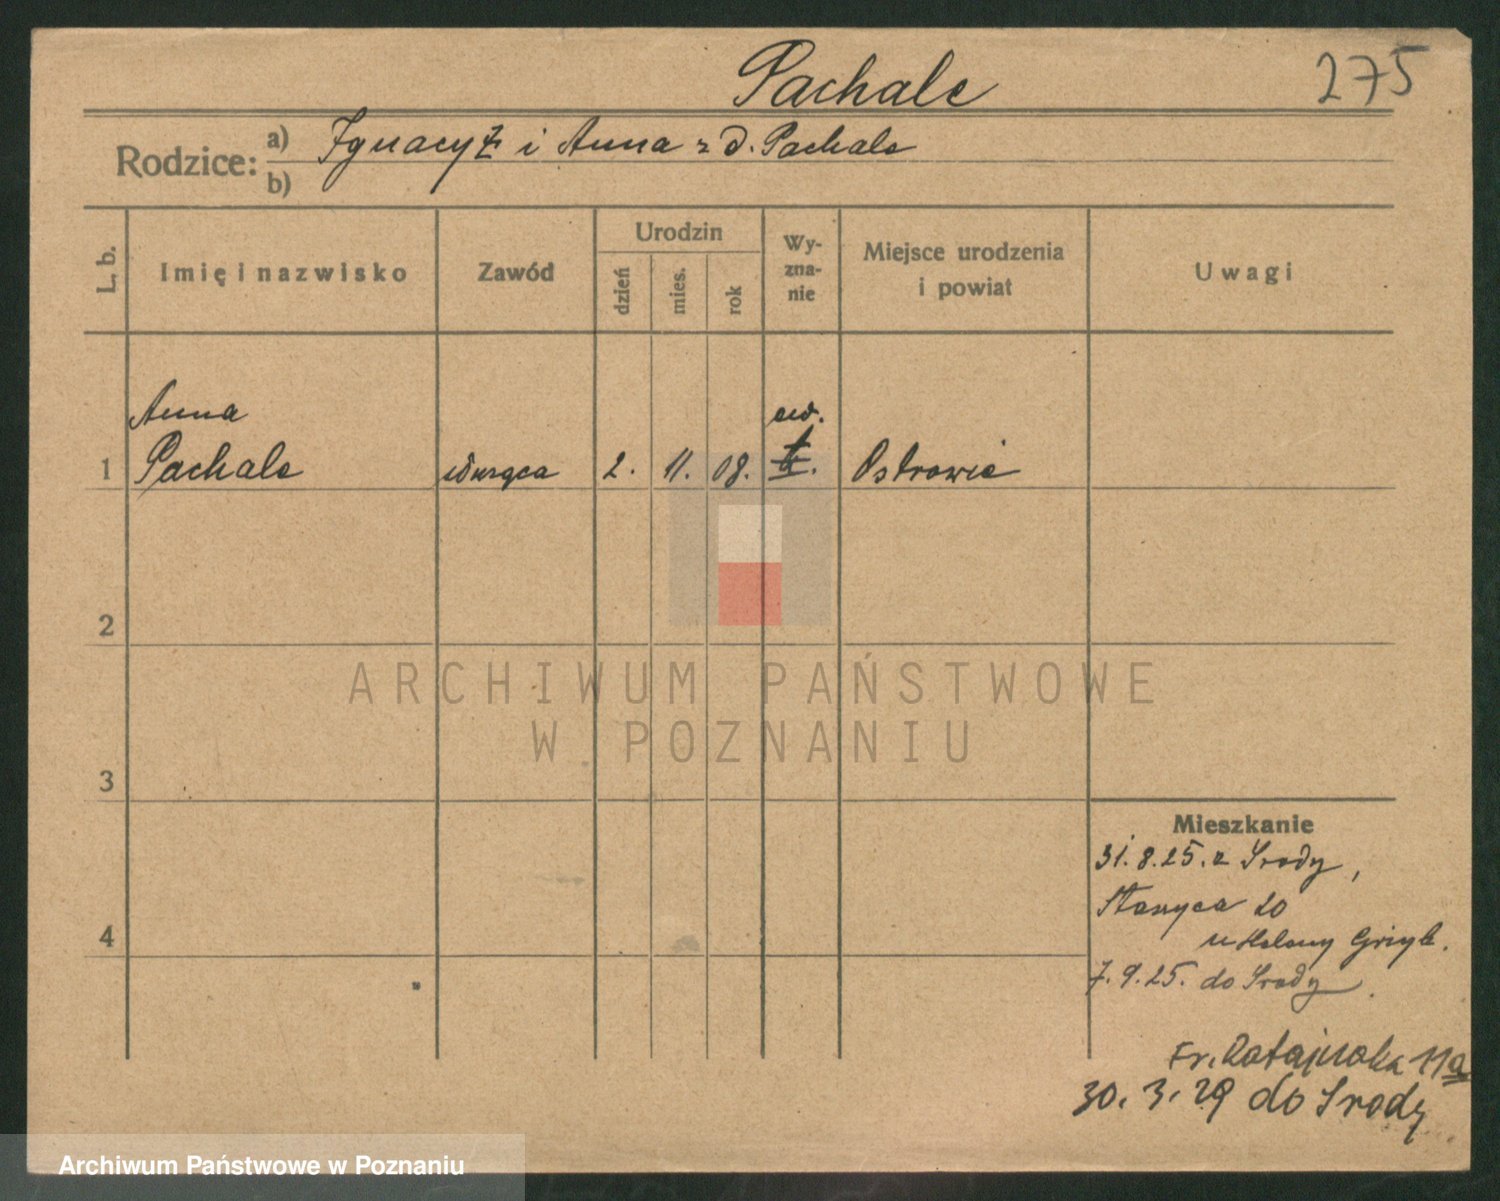 Pachale
275
Rodzice: a) Ignacy Ż i Anna z d. Pachale
b)
L. b.
Imię i nazwisko
Zawód
Urodzin
dzień
mies.
rok
Wy-
zna-
nie
Miejsce urodzenia
i powiat
Uwagi
Anna
ew.
1 Pachale służąca 2. 11. 08. k. Ostrowie
2
3
4
ARCHIWUM PAŃSTWOWE
W POZNANIU
Mieszkanie
31.8.25. z Srody,
20
u Heleny
7.9.25. do Srody.
Fr. Ratajczaka 11a
30. 3. 29 do Srody
Archiwum Państwowe w Poznaniu